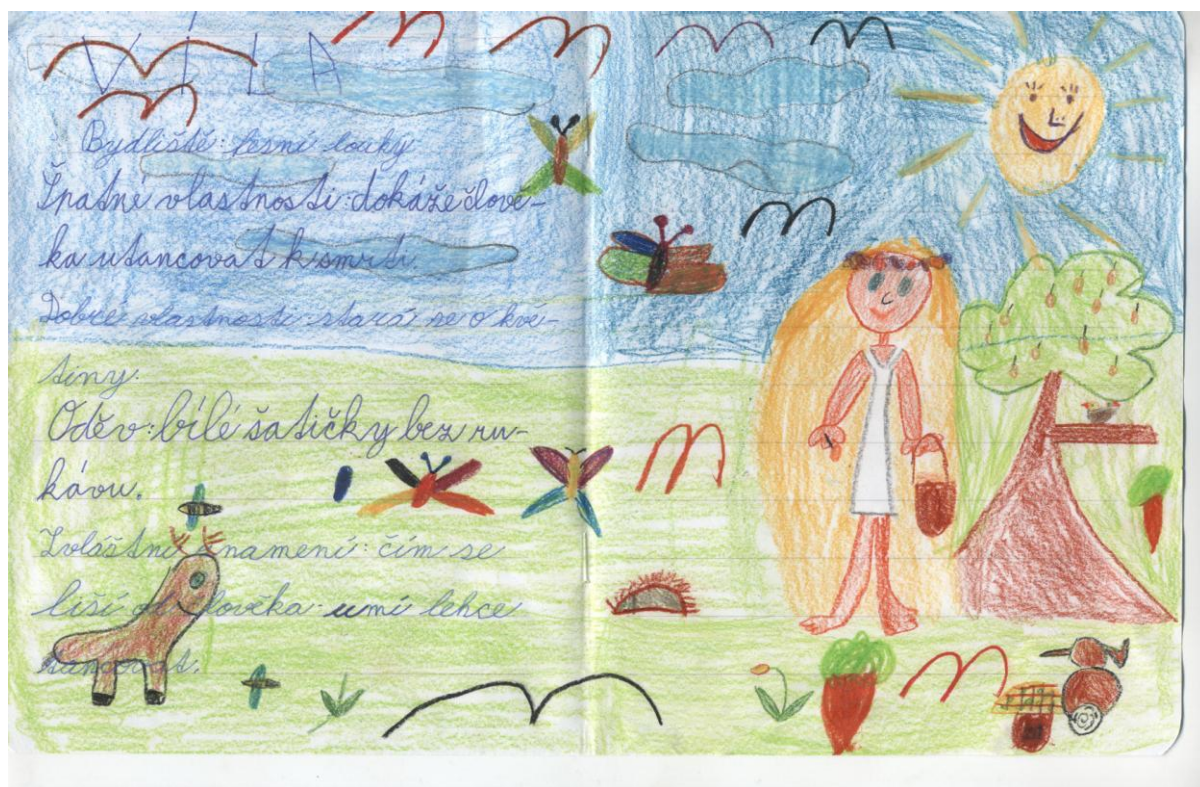 VÍLA
Bydliště: lesní louky
Špatné vlastnosti: dokáže člově-
ka utancovat k smrti
Dobré vlastnosti: stará se o kvě-
tiny.
Oděv: bílé šatičky bez ru-
kávu.
Zvláštní znamení: čím se
liší od člověka: umí lehce
tancovat.